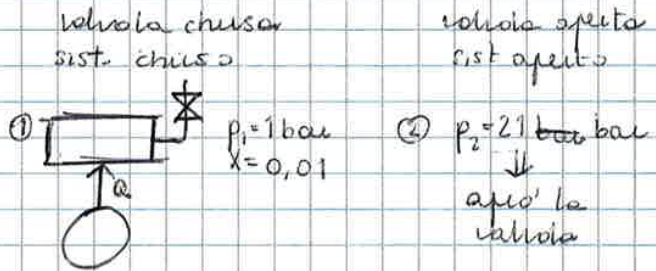 valvola chiusa
sist. chiuso
valvola aperta
sist aperto
① p₁=1 bar
x=0,01
Q
② p₂=21 bar
⇓
aprò la
valvola